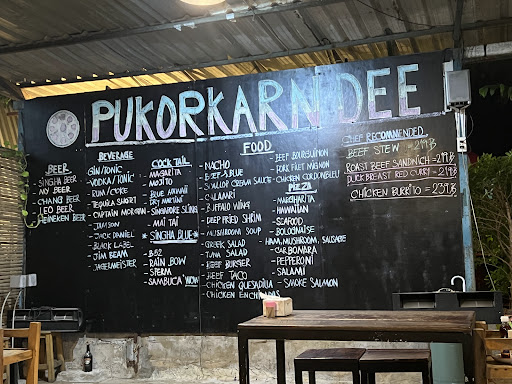 PUKORKARN DEE
BEER
SINGHA BEER
MY BEER
CHANG BEER
LEO BEER
HEINEKEN BEER
BEVERAGE
GIN/TONIC
VODKA/TONIC
RUM/COKE
TEQUILA SHORT
CAPTAIN MORGAN
JAMSON
JACK DANIEL
BLACK LABEL
JIM BEAM
JAGERMEISTER
COCK TAIL
MAGARITA
MOJITO
DRY MARTINI
SINGAPORE SLING
MAI TAI
*SINGHA BLUE*
B52
RAIN BOW
SPERM
SAMBUCA WOW
FOOD
- NACHO
- CALAMARI
- BUFFALO WING
- DEEP FRIED SHRIM
- MUSHROOM SOUP
- GREEK SALAD
- TUNA SALAD
- BEEF BURGER
- BEEF TACO
- CHICKEN QUESADILLA
- CHICKEN ENCHILADAS
- BEEF BOURGUIGNON
- PORK FILET MIGNON
- CHICKEN CORDONBLEU
PIZZA
- MARGHARITA
- HAWAIIAN
- SEAFOOD
- BOLOGNAISE
- HAM, MUSHROOM, SAUSAGE
- CARBOMARA
- PEPPERONI
- SALAMI
- SMOKE SALMON
CHEF RECOMMENDED
BEEF STEW
ROAST BEEF SANDWICH
DUCK BREAST RED CURRY
CHICKEN BURRITO